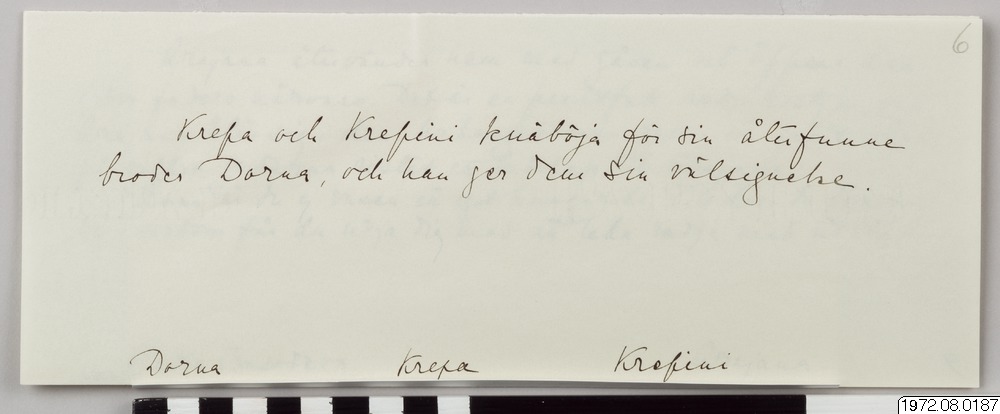 6
Krepa och Krepini knäböja för sin återfunne
broder Darna, och han ger dem sin välsignelse.
Darna Krepa Krepini
1972.08.0187